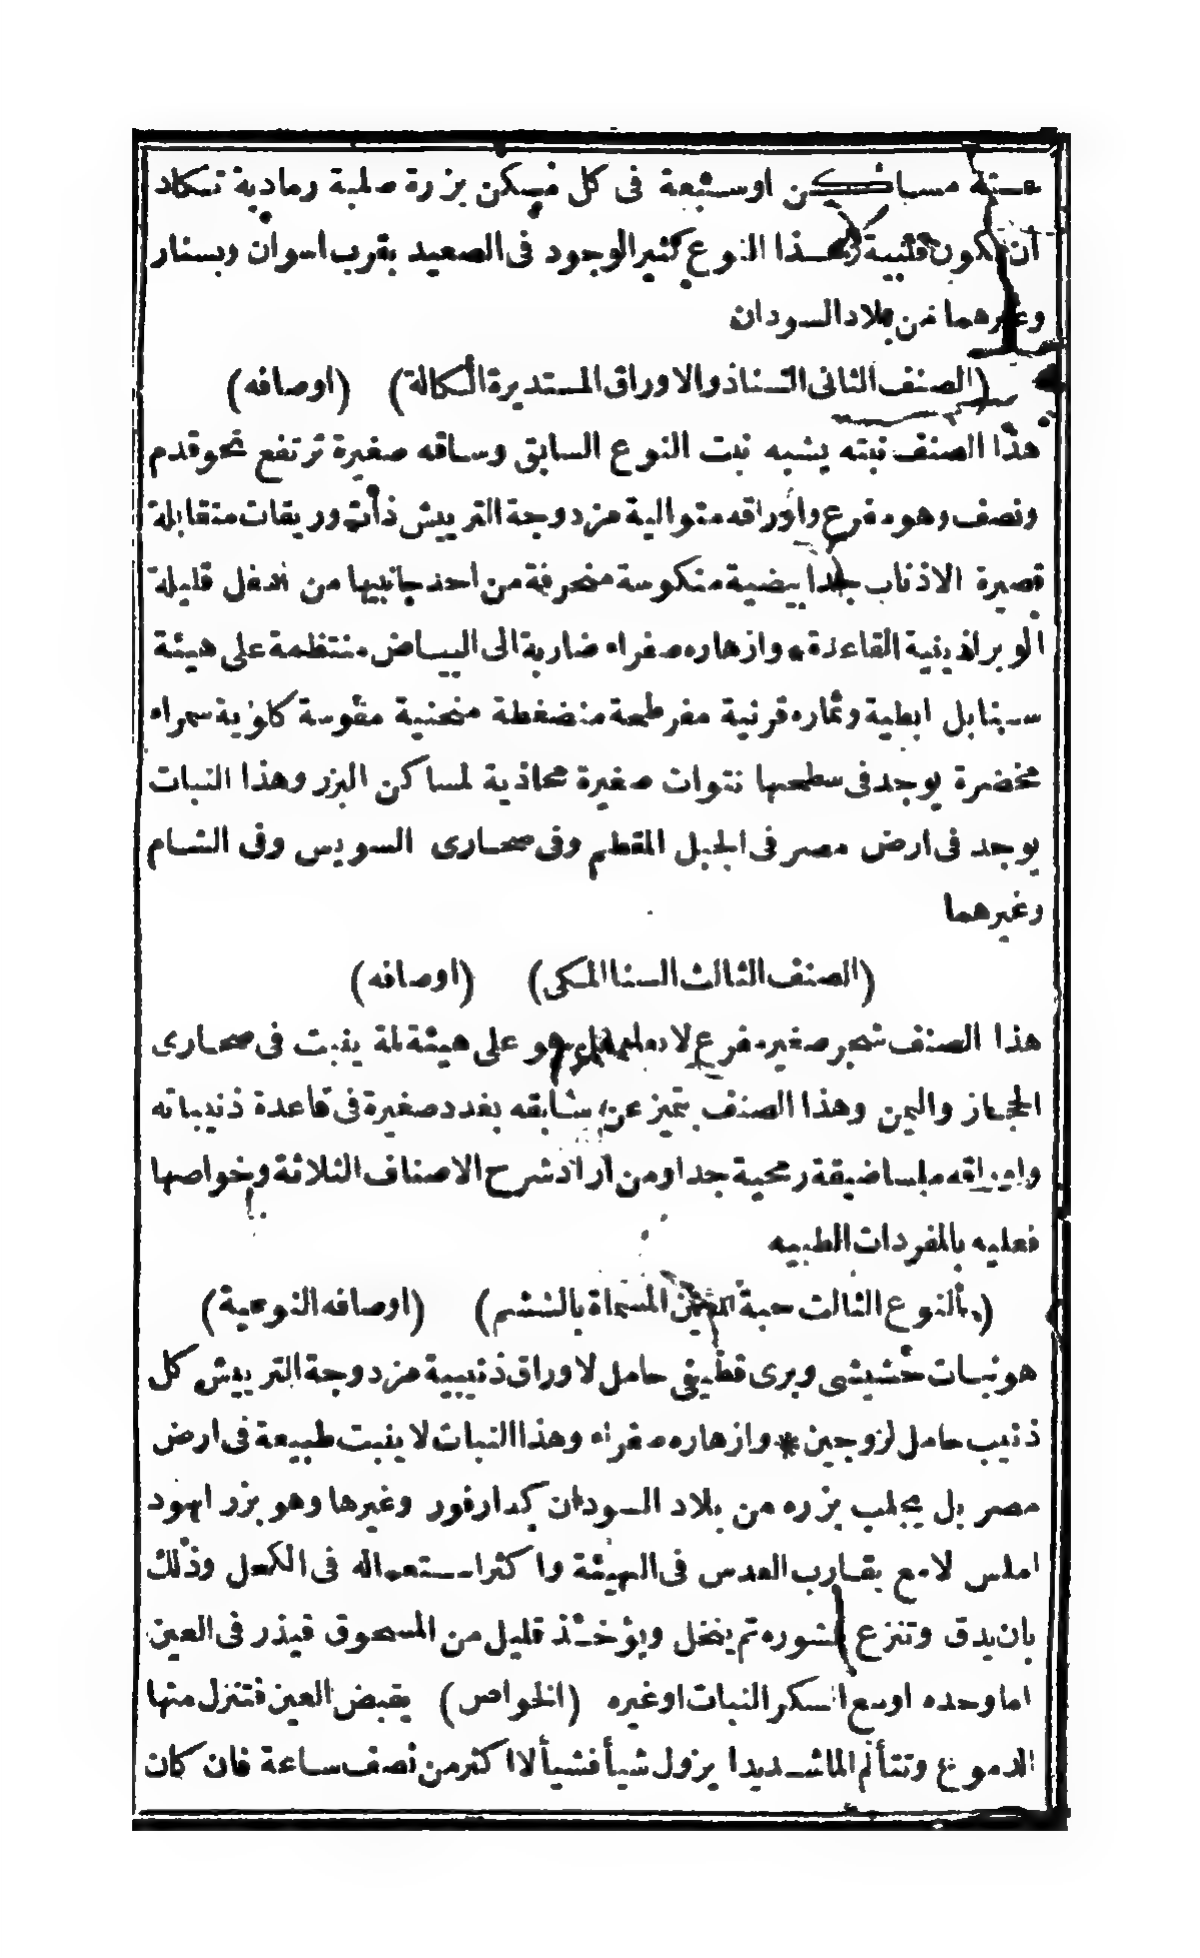 ستة مساكن او سبعة فى كل مسكن بزرة صلبة رمادية تكاد
ان تكون قلبية وهذا النوع كثير الوجود فى الصعيد بقرب اسوان وبسنار
وغيرهما من بلاد السودان
(الصنف الثانى السنا ذو الاوراق المستديرة الكالة) (اوصافه)
هذا الصنف نبته يشبه نبت النوع السابق وساقه صغيرة ترتفع نحو قدم
ونصف وهو مفرع واوراقه متوالية مزدوجة التريش ذات وريقات متقابلة
قصيرة الاذناب جدا بيضية منكوسة منحرفة من احد جانبيها من اسفل قليلة
الوبر اذينية القاعدة * وازهاره صفراء ضاربة الى البياض منتظمة على هيئة
سنابل ابطية وثماره قرنية مفرطحة منضغطة منحنية مقوسة كلوية سمراء
مخضرة يوجد فى سطحها نتوات صغيرة محاذية لمساكن البزر وهذا النبات
يوجد فى ارض مصر فى الجبل المقطم وفى صحارى السويس وفى الشام
وغيرهما
(الصنف الثالث السنا المكى) (اوصافه)
هذا الصنف شجر صغير مفرع لا يعلو بل هو على هيئة لمة ينبت فى صحارى
الحجاز واليمن وهذا الصنف يتميز عن سابقه بغدد صغيرة فى قاعدة ذنيباته
واوراقه ملسا ضيقة رمحية جدا ومن اراد شرح الاصناف الثلاثة وخواصها
فعليه بالمفردات الطبيه
(النوع الثالث حبة العين المسماة بالششم) (اوصافه النوعية)
هو نبات حشيشى وبرى قطيفى حامل لاوراق ذنيبية مزدوجة التريش كل
ذنيب حامل لزوجين * وازهاره صفراء وهذا النبات لا ينبت طبيعة فى ارض
مصر بل يجلب بزره من بلاد السودان كدارفور وغيرها وهو بزر اسود
املس لامع يقارب العدس فى الهيئة واكثر استعماله فى الكحل وذلك
بان يدق وتنزع قشوره ثم ينخل ويؤخذ قليل من المسحوق فيذر فى العين
اما وحده او مع السكر النبات او غيره (الخواص) يقبض العين فتنزل منها
الدموع وتتألم الما شديدا يزول شيأ فشيأ لا اكثر من نصف ساعة فان كان